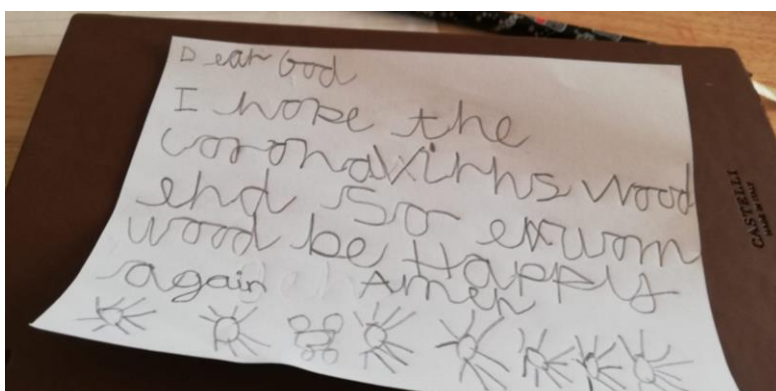 Dear God
I hope the
coronavirus wood
end so exwon
wood be Happy
again Amen
CASTELLI
MADE IN ITALY